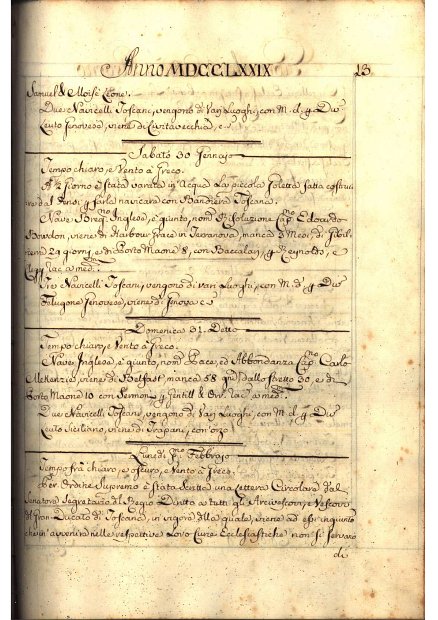 Anno MDCCLXXIX 13
Samuel & Moisè Leone.
Due Navicelli Toscani, vengono di Van Luoghi, con M. d. q. Due
Leuto Genovese, viene di Civitavecchia, e
Sabato 30 Gennajo
Tempo chiaro, e Vento à Greco.
giorno è stata varata in acqua La piccola Goletta fatta costrui
farla navicare con Bandiera Toscana.
Nave Inglese, è giunto, nomº Rizoluzione Capnº Edoardo
Bowdon, viene di Harbour Grace in Terranova, manca 3 Mesi, di
24 giorni, e di Porto Maone 8, con Baccalau, q Reynolds, e
Tre Navicelli Toscani, vengono di van Luoghi, con M. d. q Due
Felugone Genovese, viene di Genova e
Domenica 31. Detto
Tempo chiaro, e Vento à Greco.
Nave Inglese, è giunto, nomº Pace, ed Abbondanza Capnº Carlo
McKenzie, viene di Belfast manca 58 dallo stretto 30, e di
Porto Maone 10 con Sermon q Gentill & Orr.
Due Navicelli Toscani, vengono di Van Luoghi, con M. d. q. Due
Leuto Siciliano, viene di Trapani, con orzo
Lunedi pmo Febbrajo
Tempo frà chiaro, e oscuro, e Vento à Greco.
Per Ordine Supremo è stata dentro una Lettera Circolare dal
Senatore Segretario del Regio Diritto a tutti gli Arcivescovi, e Vescovi
del Gran Ducato di Toscana, in vigore della quale, viene ad ingiunto
avvenire nelle respettive Loro Curie Ecclesiastiche non si servano
di